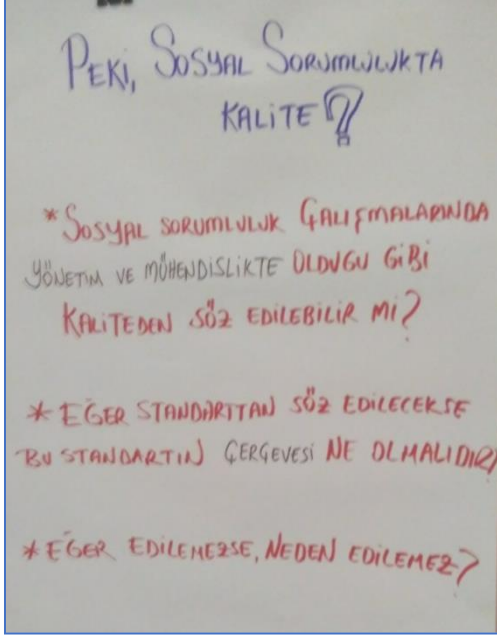 PEKİ, SOSYAL SORUMLULUKTA
KALİTE?
* SOSYAL SORUMLULUK ÇALIŞMALARINDA
YÖNETİM VE MÜHENDİSLİKTE OLDUĞU GİBİ
KALİTEDEN SÖZ EDİLEBİLİR Mİ?
* EĞER STANDARTTAN SÖZ EDİLECEKSE
BU STANDARTIN ÇERÇEVESİ NE OLMALIDIR?
* EĞER EDİLEMEZSE, NEDEN EDİLEMEZ?